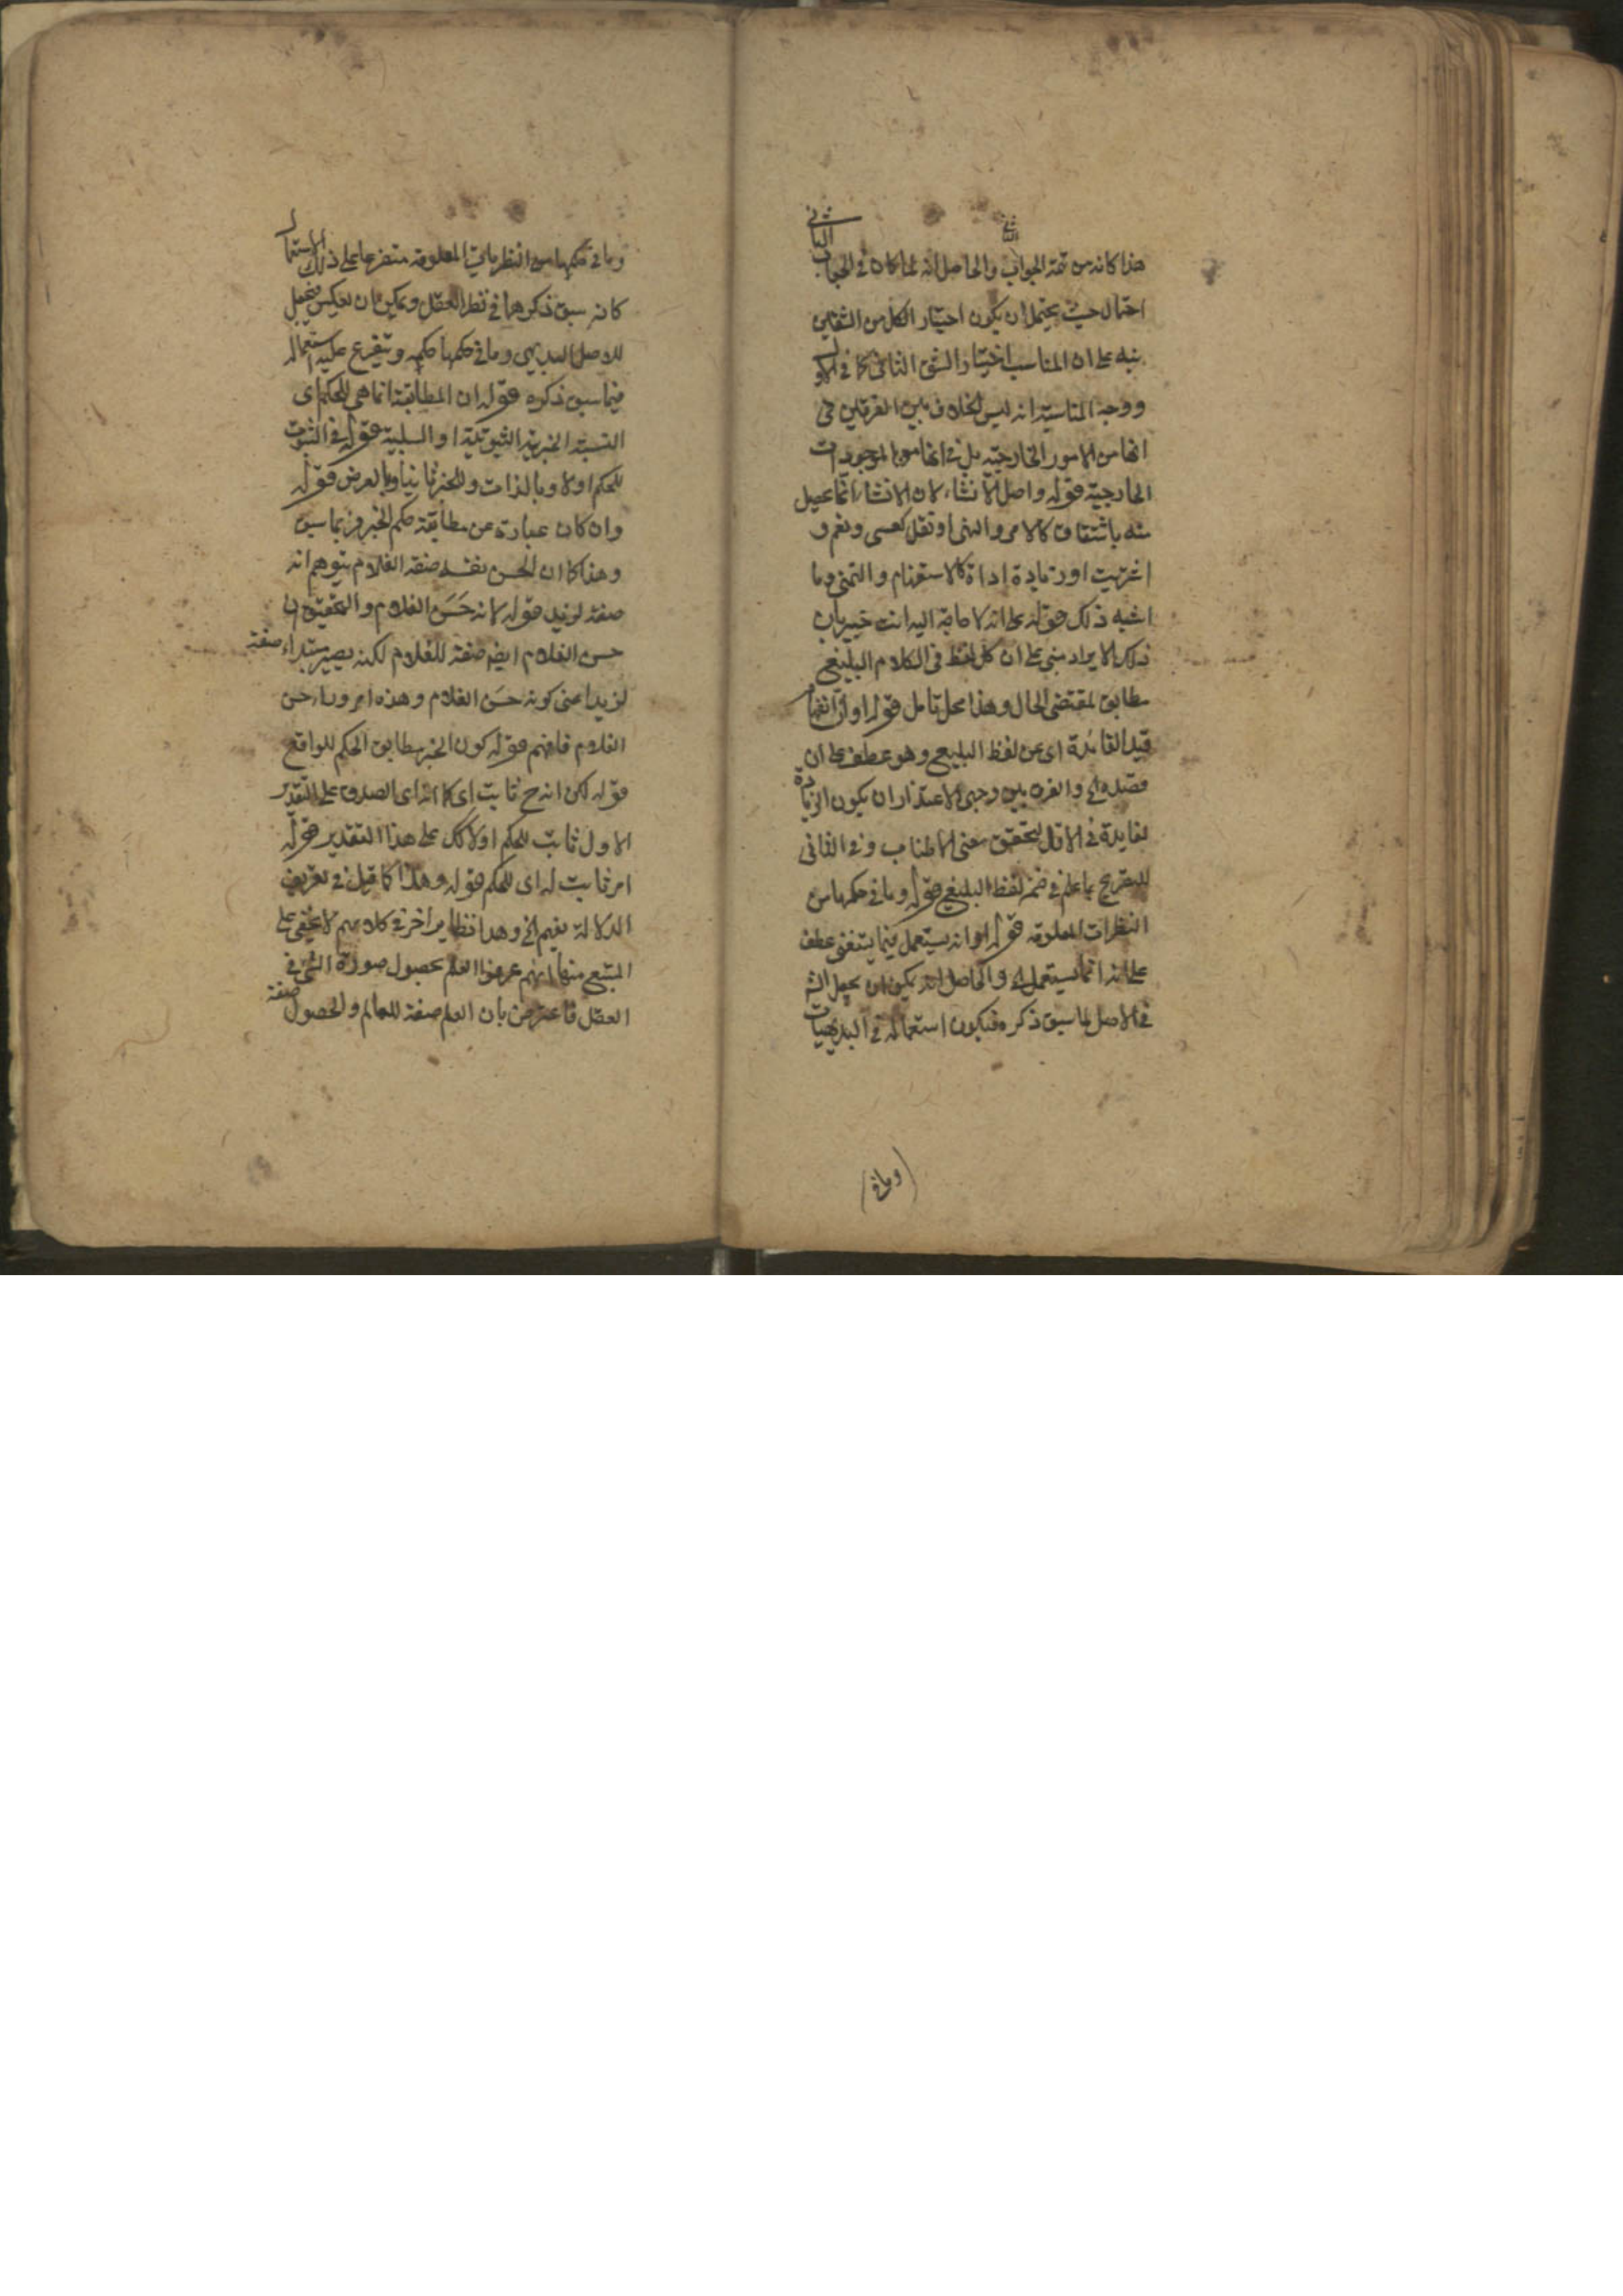 هذا كانه من تتمة الجواب والحاصل انه لما كان في الجواب الثاني
احتمال حيث يحتمل ان يكون اختيار الكل من الشقين
نبه على ان المناسب اختيار الشق الثاني كما في الاول
ووجه المناسبة انه ليس الخلاف بين الفريقين في
انها من الامور الخارجية بل في انها من الموجودات
الخارجية قوله واصل الانشاء لان الانشاء انما يحصل
منه باشتقاق كالامر والنهي او نقل كعسى ونعم و
اشتريت او زيادة اداة كالاستفهام والتمني وما
اشبه ذلك قوله على انه لا حاجة اليه انت خبير بان
ذلك الايراد مبني على ان كل لفظ في الكلام البليغ
مطابق لمقتضى الحال وهذا محل تامل قوله او ان انضمام
قيد الفائدة اي عن لفظ البليغ وهو عطف على ان
قصده الخ والفرق بين وجهي الاعتذار ان يكون الزيادة
لفايدة في الاول لتحقق معنى الاطناب وفي الثاني
للتصريح بما علم في ضمن لفظ البليغ قوله وما في حكمها من
النظرات المعلومة قوله او انه يستعمل فيما يتنفى عطف
على انه انما يستعمل الخ والحاصل انه يمكن ان يجعل
في الاصل لما سبق ذكره فيكون استعماله في البديهيات
(وما في)
وما في حكمها من النظريات المعلومة متفرعا على ذلك الاستعمال
كانه سبق ذكرهما في نظر العقل ويمكن ان يعكس فيجعل
للاصل البديهي وما في حكمها حكمه ويتفرع عليه استعماله
فيما سبق ذكره قوله ان المطابقة انما هي للحكم اي
النسبة الخبرية الثبوتية او السلبية قوله في الثبوت
للحكم اولا وبالذات وللخبر ثانيا وبالعرض قوله
وان كان عبارة عن مطابقة حكم الخبر بما سبق
وهذا كما ان الحسن نفسه صفة الغلام يتوهم انه
صفة لزيد قوله لانه حَسَن الغلام والتحقيق ان
حسن الغلام ايضا صفة للغلام لكنه يصير مبتداء صفة
لزيد اعني كونه حسَن الغلام وهذه امر وراء حسن
الغلام فافهم قوله كون الخبر مطابق الحكم للواقع
قوله لكن انه ح ثابت اي كما انه اي الصدق على التقدير
الاول ثابت للحكم اولا كك على هذا التقدير قوله
امر ثابت له اي للحكم قوله وهذا كما قيل في تعريف
الدلالة بفهم الخ وهذا نظاير اخر في كلامهم لا يخفى على
المتتبع منها انهم عرفوا العلم بحصول صورة الشئ في
العقل فاعترض بان العلم صفة للعالم والحصول صفة